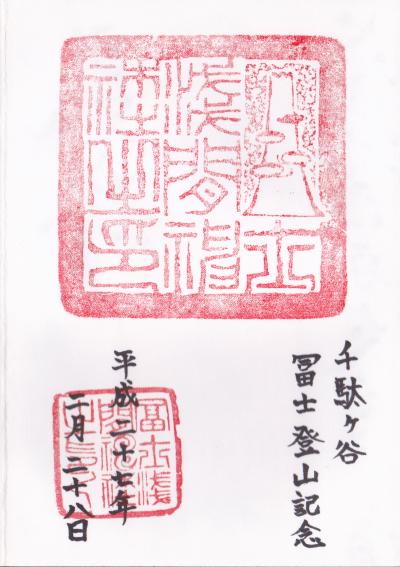 士
淺間神
社之印
千駄ヶ谷
冨士登山記念
平成二十七年
二月二十八日
冨士淺
間神社